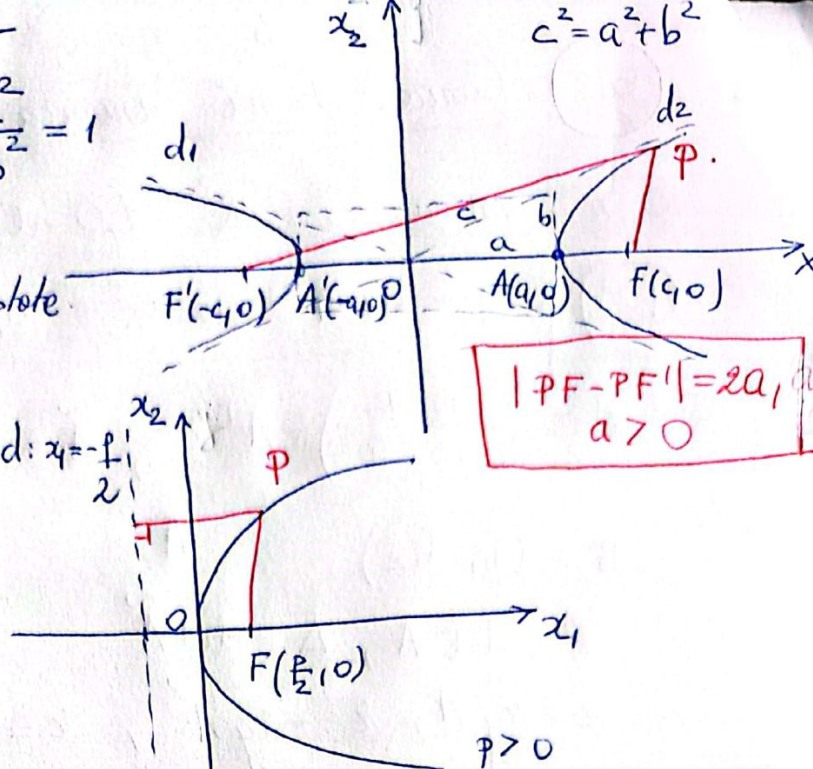 x₂
c² = a² + b²
= 1
d₁
d₂
P.
c
b
a
F'(-c,0) A'(-a,0) O A(a,0) F(c,0)
|PF-PF'| = 2a,
a > 0
x₂
d: x₁ = -p/2
P
O
x₁
F(p/2, 0)
p > 0